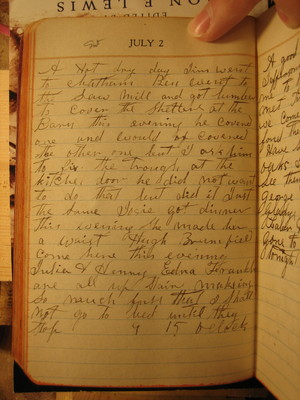 ON E LEWIS
EDITED
95 JULY 2
A Hot dry day Jim went
to Chatham then went to
the Saw Mill and got lumber
to Cover the Shelter at the
Barn this evening he covered
one and would of covered
the other one but I ask him
to fix the trough at the
kitchen door he did not want
to do that but did it Just
the Same Susie got dinner
this evening She made her
a waist Hugh Brumfield
Come here this evening
Julia & Henry Edna Franklin
are all up Stair makeing
So much fuss that I Shall
not go to bed until they
Stop 9 15 o clock
A good
me to
met
we come
George
Gone to
tonight